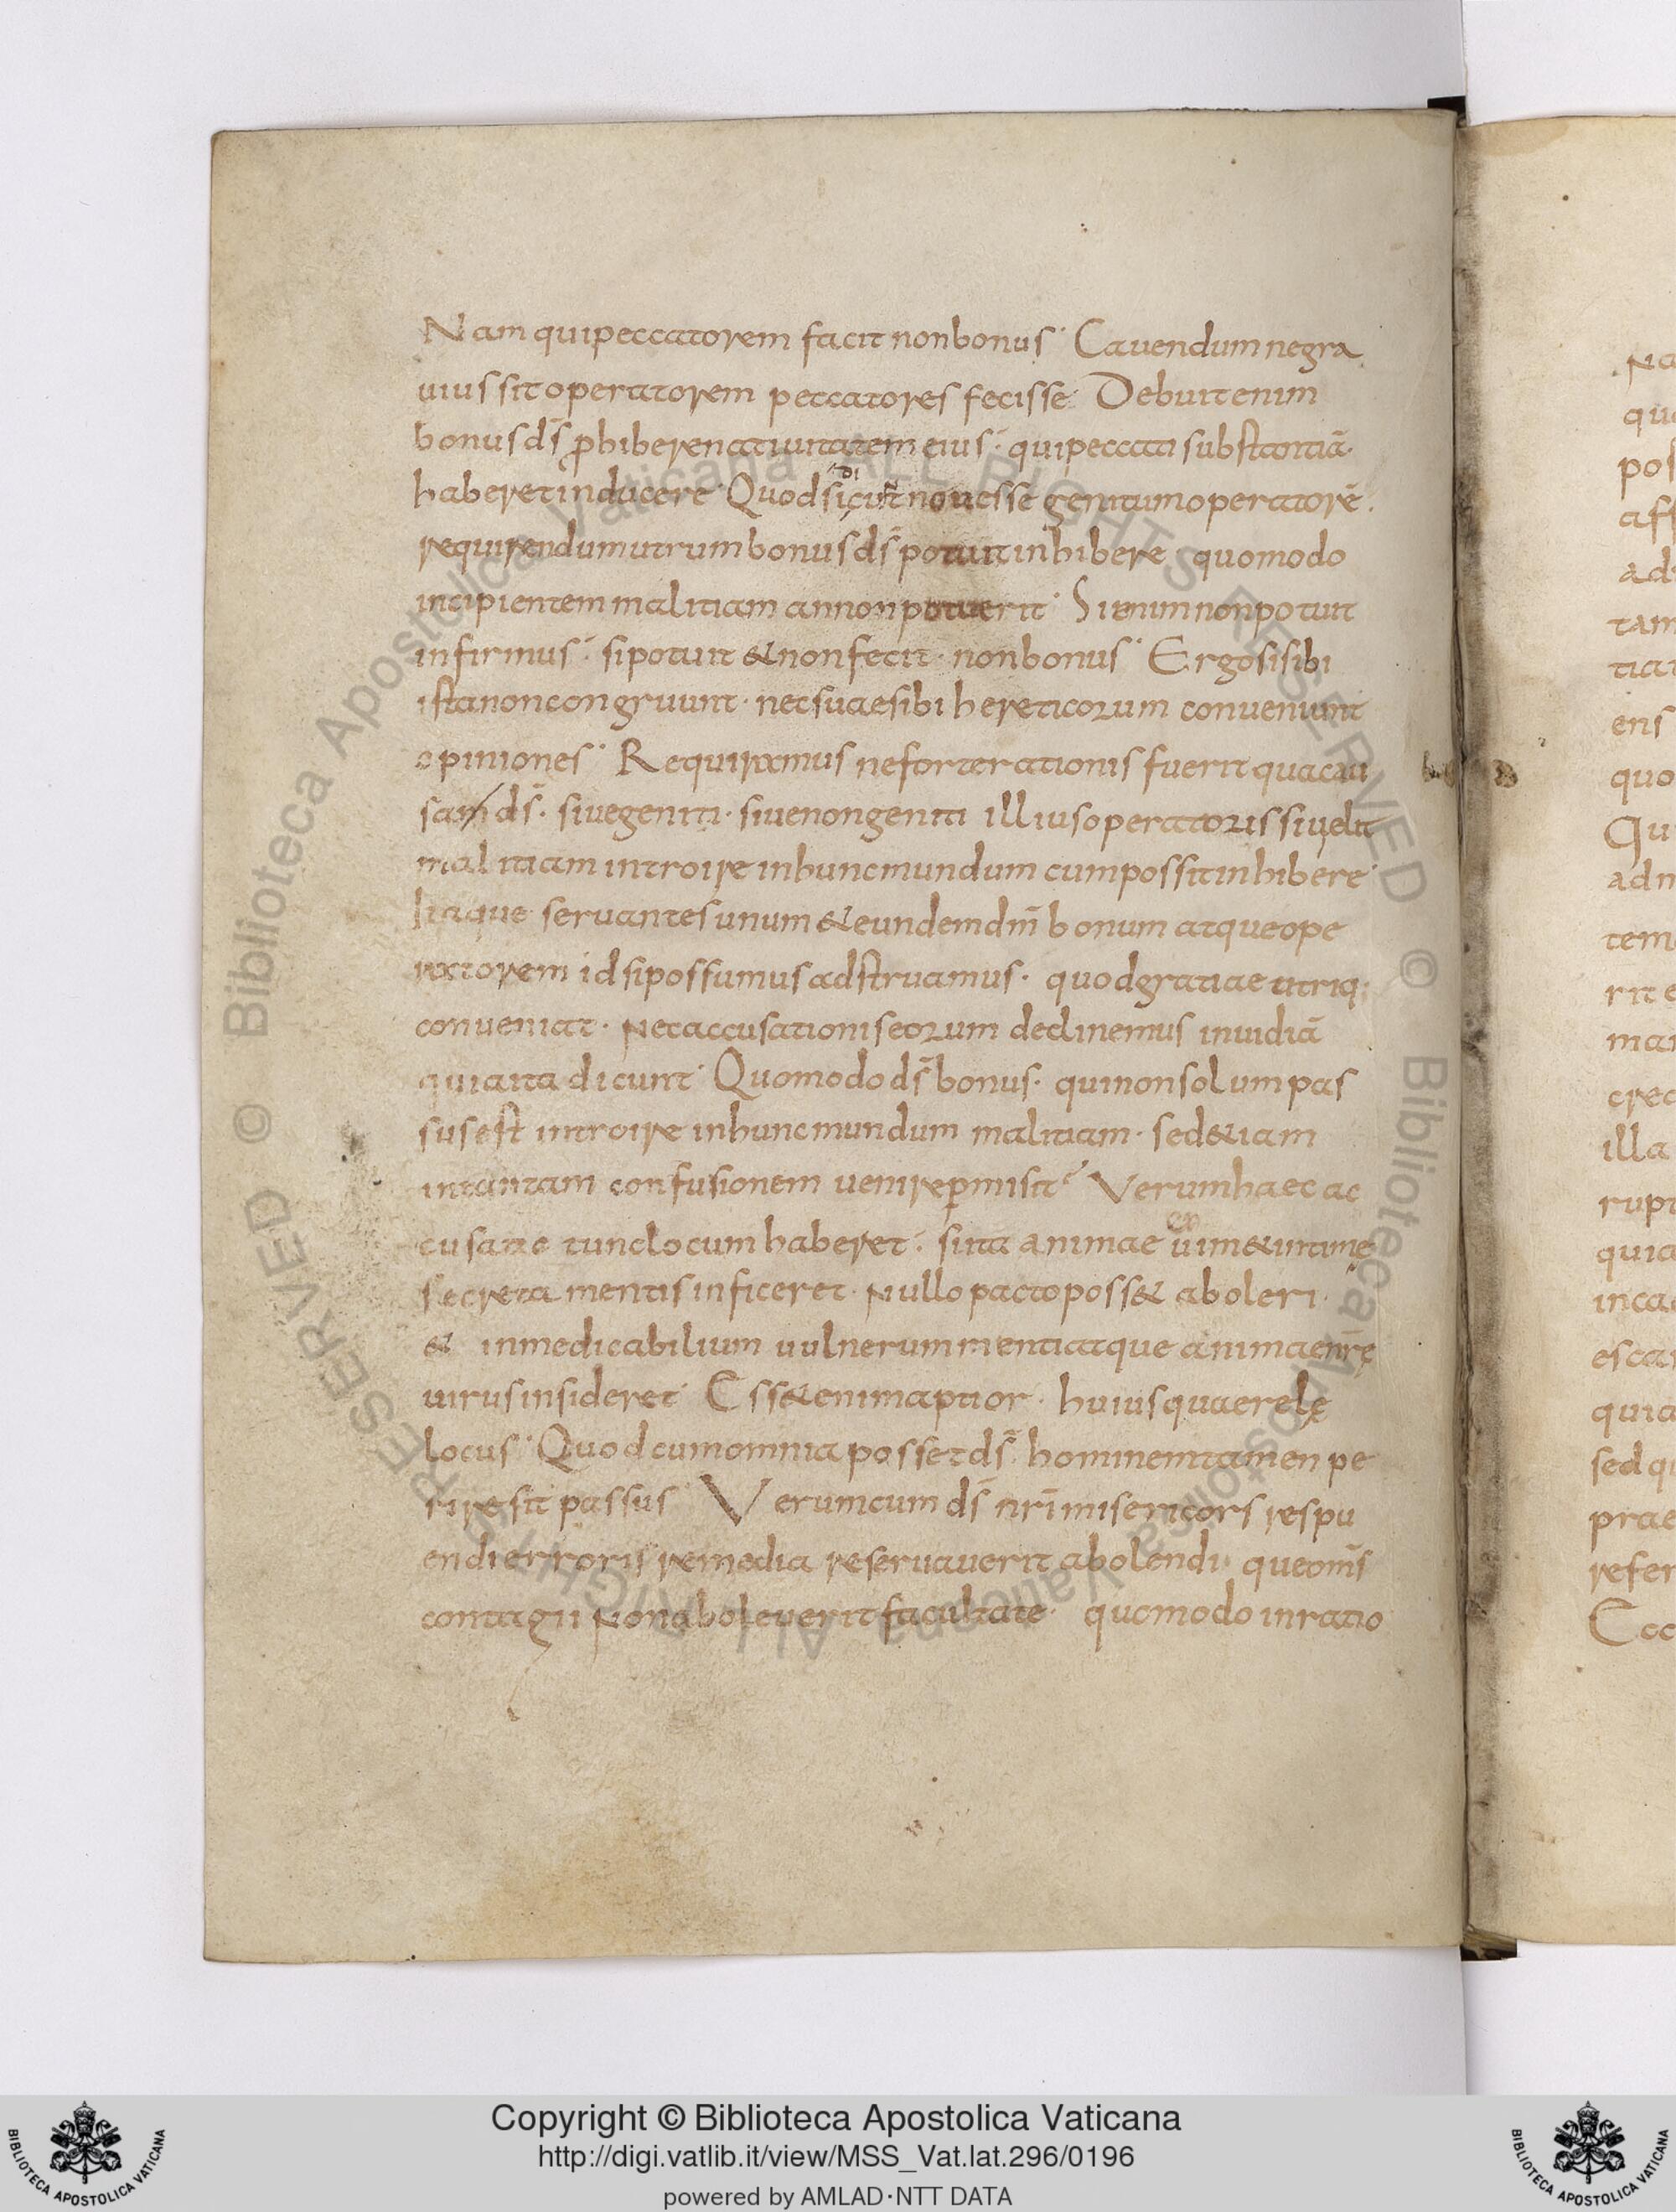 Nam qui peccatorem facit non bonus· Cauendum ne gra
uius sit operatorem peccatores fecisse· Debuit enim
bonus d̄s ꝓhibere natiuitatem eius· qui peccati substantiā·
haberet inducere· Quod si non esse genitum operatorē·
requirendum utrum bonus d̄s potuit inhibere quomodo
incipientem malitiam an non potuerit· Si enim non potuit
infirmus· si potuit & non fecit· non bonus· Ergo si sibi
ista non congruunt· nec suae sibi hereticorum conueniunt
opiniones· Requiramus ne forte rationis fuerit qua cau
sam d̄s· siue geniti· siue non geniti illius operatoris siuelit
malitiam introire in hunc mundum cum possit inhibere·
Itaque seruantes unum & eundem dn̄m bonum atque ope
ratorem id si possumus adstruamus· quod gratiae utriq;
conueniat· Nec accusationis eorum declinemus inuidiā
quia ita dicunt· Quomodo d̄s bonus· qui non solum pas
sus est introire in hunc mundum malitiam· sed &iam
in tantam confusionem uenire ꝑmisit Verum haec ac
cusatio tunc locum haberet· si ita animae uim & intimę
secreta mentis inficeret· Nullo pacto poss& aboleri·
& inmedicabilium uulnerum menti atque animae nr̄ę
uirus insideret· Ess& enim aptior· huius quaerelę
locus· Quod cum omnia posset d̄s· hominem tamen pe
rire sit passus Verum cum d̄s nr̄i misericors respu
endi erroris remedia reseruauerit abolendi que om̄s
contagii Non aboleuerit facultate· quomodo inratio
Na
qu
pos
aff
ad
tam
tia
ens
quo
Qu
adn
tem
rit e
ma
cred
illa
rupt
quia
inca
esca
quia
sed q
prae
refer
Ecc
© Biblioteca Apostolica Vaticana ALL RIGHTS RESERVED © Biblioteca Apostolica Vaticana ALL RIGHTS RESERVED
Copyright © Biblioteca Apostolica Vaticana
http://digi.vatlib.it/view/MSS_Vat.lat.296/0196
powered by AMLAD·NTT DATA
BIBLIOTECA APOSTOLICA VATICANA
BIBLIOTECA APOSTOLICA VATICANA